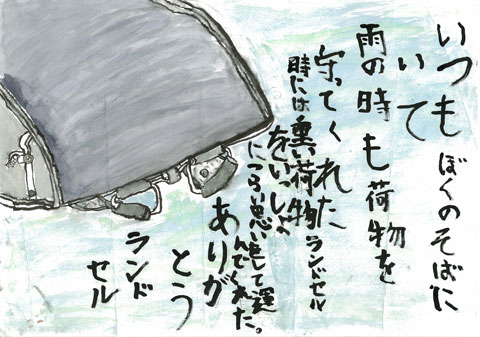 いつもぼくのそばに
いて
雨の時も荷物を
守ってくれたランドセル
時には重い荷物
をいっしょ
につらい思いをして運
んでくれた。
ありが
とう
ランド
セル